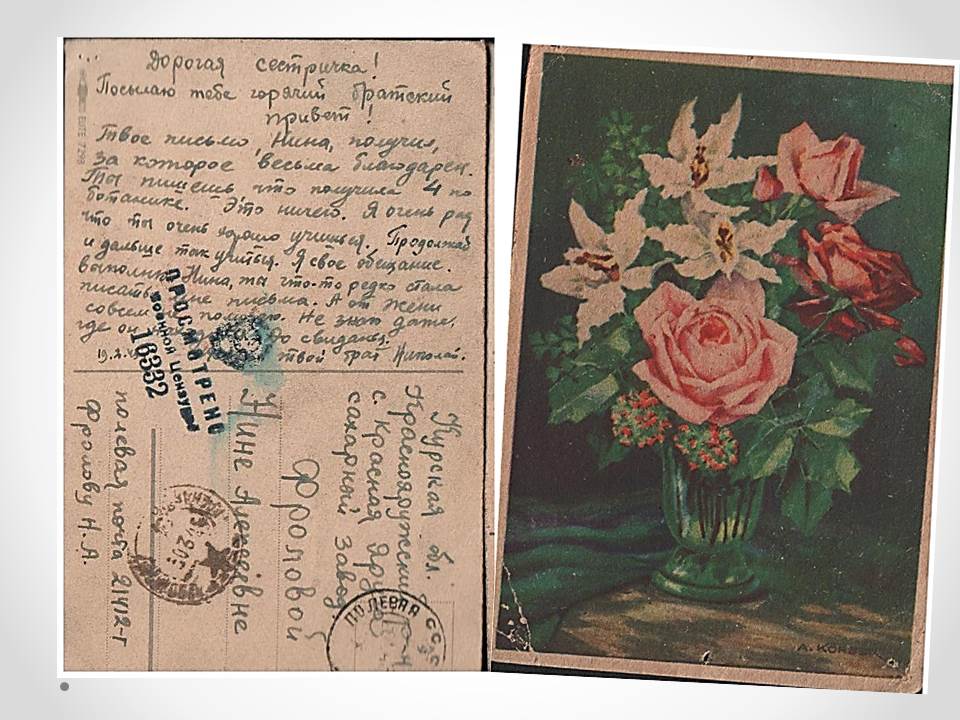 Дорогая сестричка!
Посылаю тебе горячий братский
привет!
Твое письмо, Нина, получил,
за которое весьма благодарен.
Ты пишешь, что получила 4 по
ботанике. Это ничего. Я очень рад
что ты очень хорошо учишься. Продолжай
и дальше так учиться. Я свое обещание
выполню. Нина, ты что-то редко стала
писать мне письма. А от Жени
совсем не получаю. Не знаю даже,
где он До свиданья.
19.2. твой брат Николай.
ПРОСМОТРЕНО
Военной Цензурой
16332
Курская обл.
Краснояружский р-н
с. Красная Яруга
сахарный завод
Фроловой
Нине Алексеевне
полевая почта 21412-г
Фролову Н.А.
ПОЛЕВАЯ
СССР
BITE 7298
A. KO